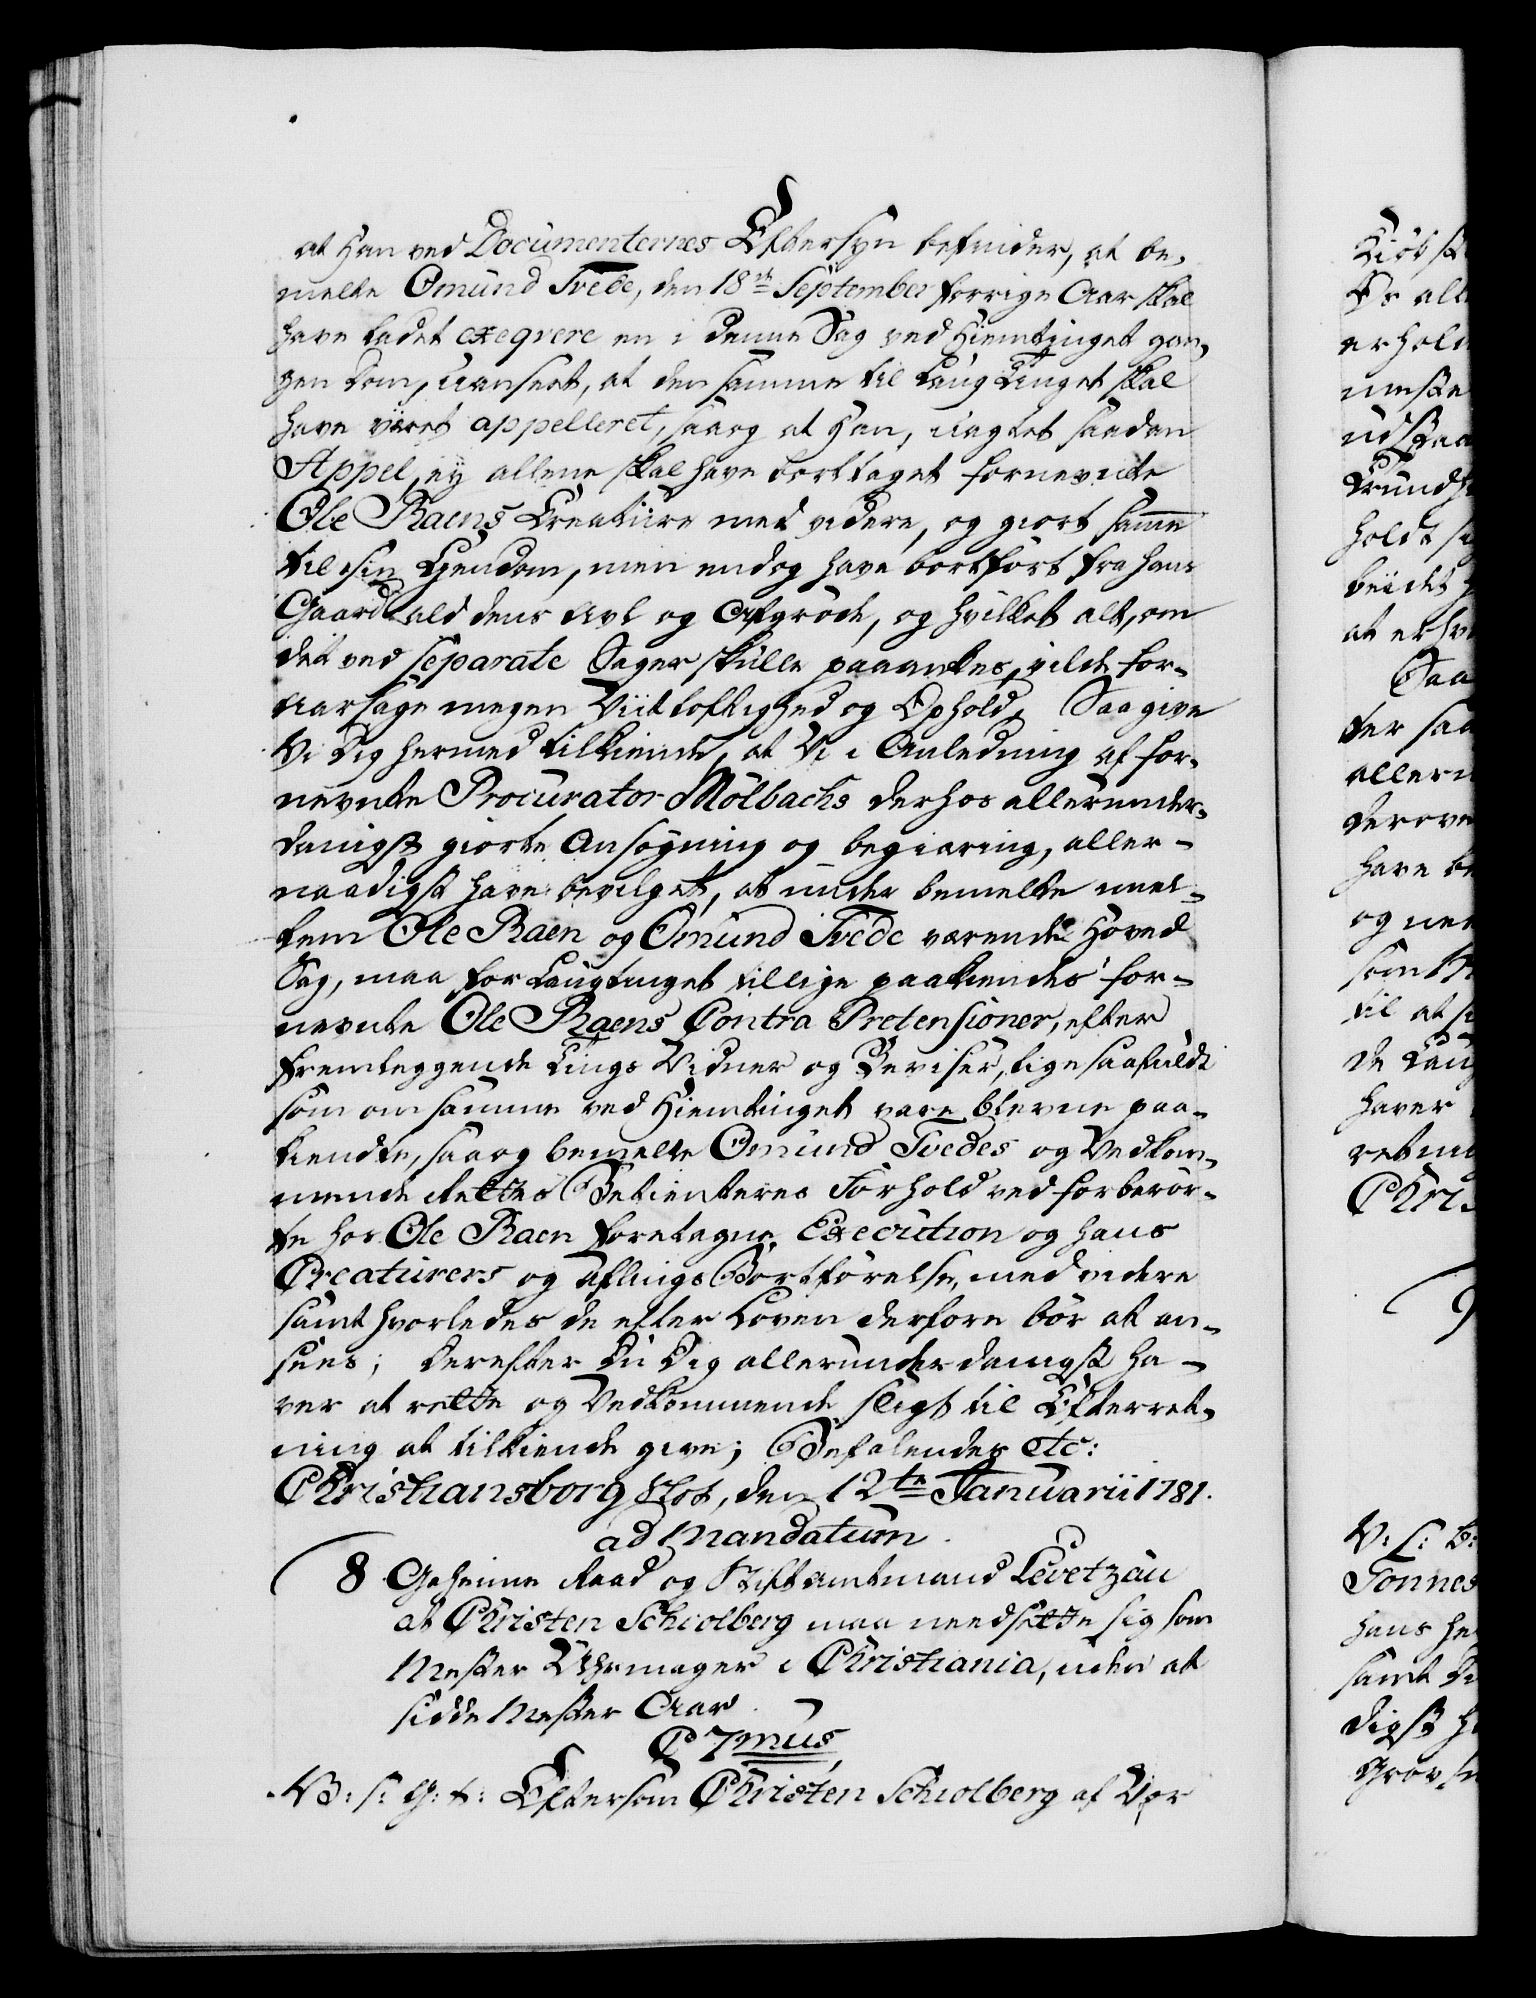 at Han ved Documenternes Eftersyn befinder, at be-
melte Omund Tvede, den 18de September forrige Aar skal
have ladet exeqvere en i denne Sag ved Hiemtinget gan-
gen Dom, uanseet, at den samme til Laug Tinget skal
have været appelleret, saa og at Han, uagtet saadan
Appel, ey allene skal have borttaget fornevnte
Ole Raens Creature med videre, og giort samme
til sin Ejendom, men endog have bortført fra hans
Gaard ald dens Avl og Afgrøde, og hvilket alt, om
det ved separate Sager skulle paaankes, vilde for-
aarsage megen Viitløftighed og Ophold, Saa give
Vi Dig hermed tilkiende, at Vi i Anledning af for-
nevnte Procurator Mølbachs derhos allerunder-
danigst giorte Ansøgning og begiæring, aller-
naadigst have bevilget, at under bemelte mel-
lem Ole Raen og Omund Tvede værende Hoved
Sag, maa for Laugtinget tillige paakiendes for-
nevnte Ole Raens Contra Pretensioner, efter
fremleggende Tings Vidner og Beviser, lige saafuldt
som om samme ved Hiemtinget vare blevne paa-
kiendte, saa og bemelte Omund Tvedes og Vedkom-
mende Rettes Betienteres Forhold ved forberør-
te hos Ole Raen foretagne Execution og hans
Creaturers og Aflings Bortførelse, med videre
samt hvorledes de efter Loven derfore bør at an-
sees; Derefter Du Dig allerunderdanigst ha-
ver at rette og Vedkommende sligt til Efterret-
ning at tilkiende give; Befalendes etc:
Christiansborg Slot, den 12te Januarii 1781.
ad Mandatum.
8 Geheime Raad og Stiftamtmand Levetzau
at Christen Schiolberg maa needsette sig som
Mester Uhrmager i Christiania, uden at
sidde Mester Aar.
C 7mus,
V: S: G: t: Eftersom Christen Schiolberg af Vor